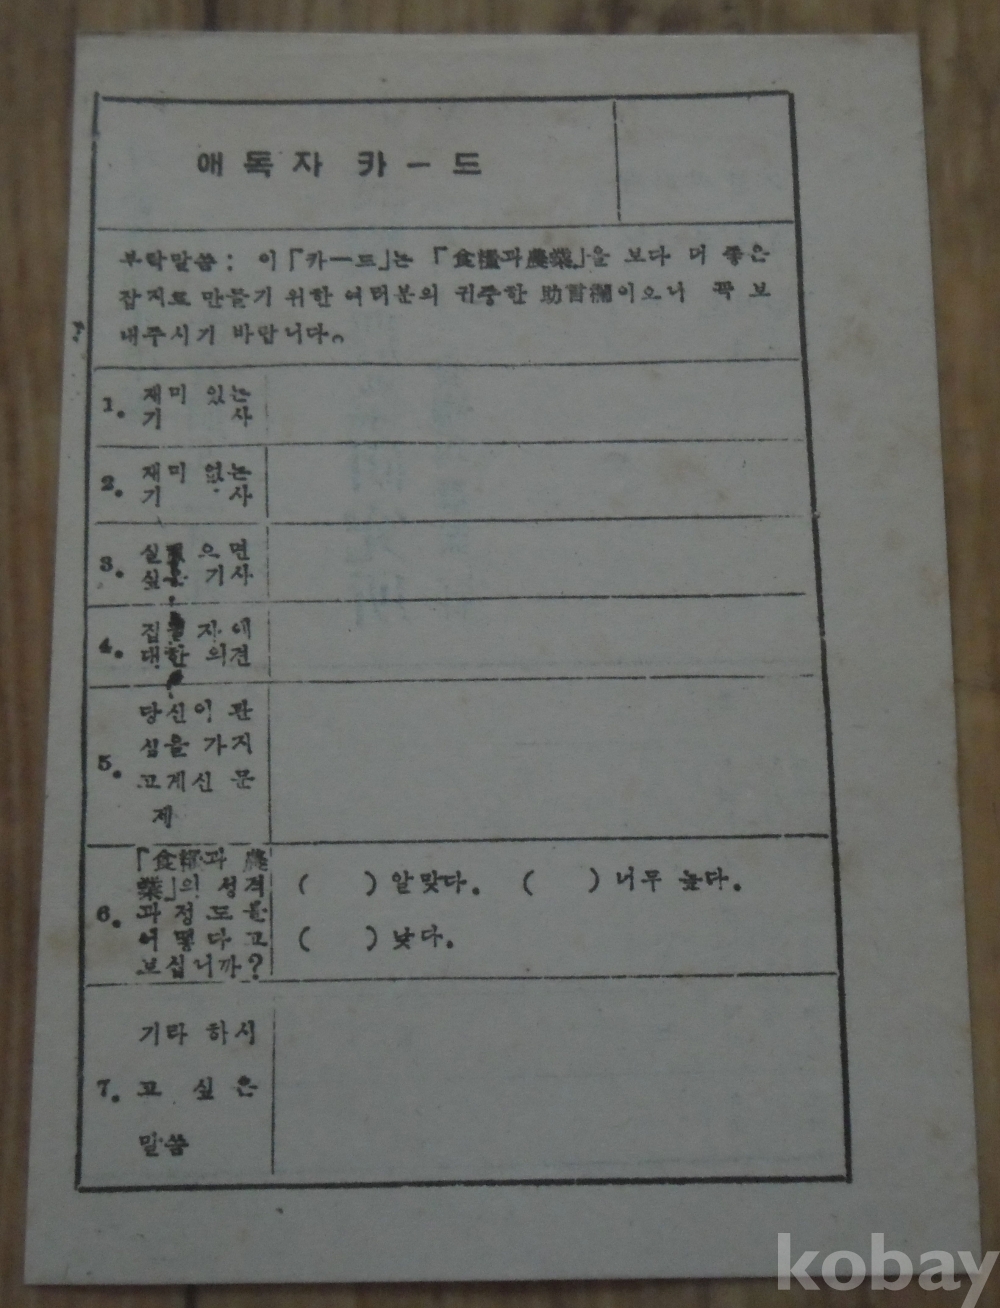 애독자 카ー드
부탁말씀: 이「카ー드」는 「食糧과農業」을 보다 더 좋은
잡지로 만들기 위한 여러분의 귀중한 助言欄이오니 꼭 보
내주시기 바랍니다。
1. 재미 있는
기 사
2. 재미 없는
기 사
3. 으면
싶은 기사
4. 집필자에
대한 의견
5. 당신이 관
심을 가지
고계신 문
제
6. 「食糧과 農
業」의 성격
과 정도를
어떻다고
보십니까?
( ) 알맞다. ( ) 너무 높다.
( ) 낮다.
7. 기타 하시
고 싶은
말씀
kobay